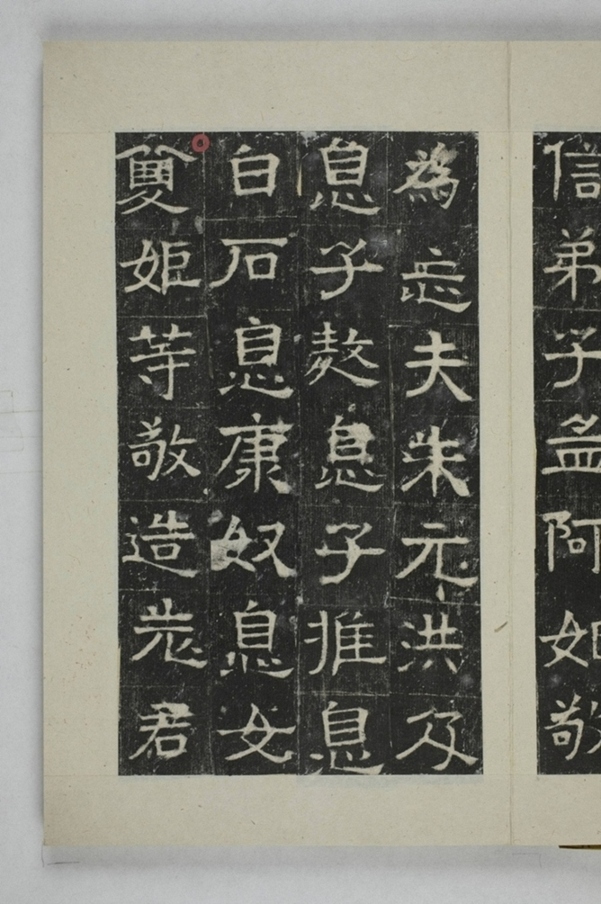 信弟子孟阿妃敬
為忘夫朱元洪及
息子敖息子推息
白石息康奴息女
姬等敬造老君